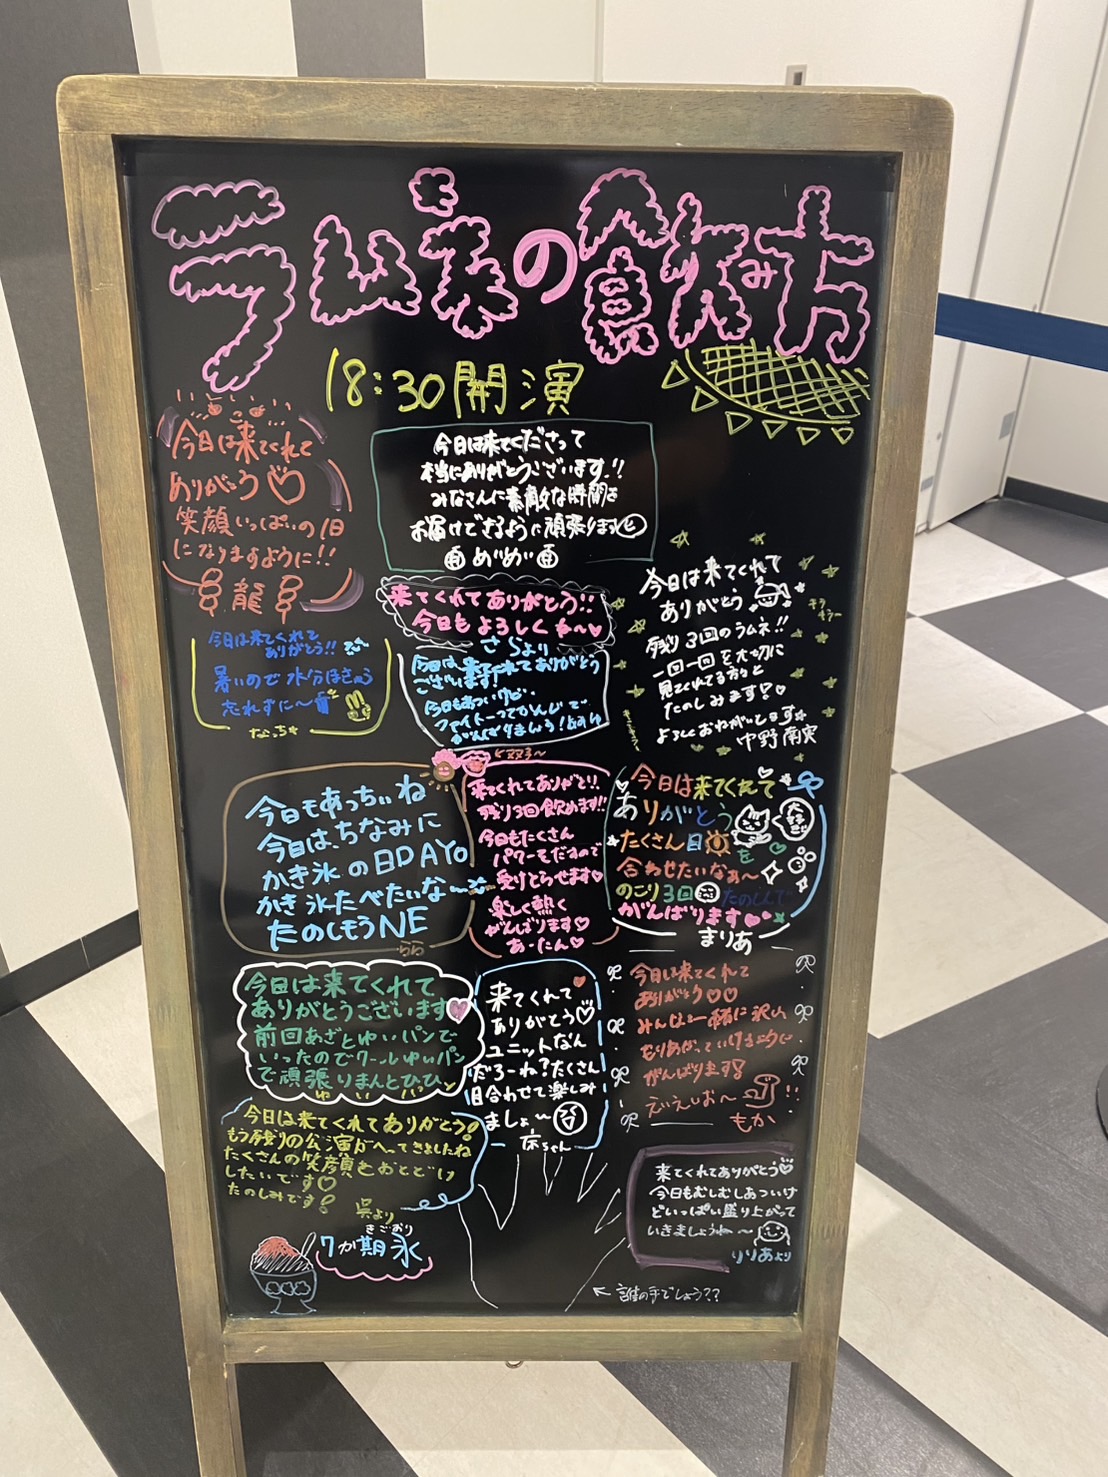 ラムネの飲み方
18:30開演
今日は来てくれて
ありがとう♡
笑顔いっぱいの1日
になりますように!!
龍
今日は来てくださって
本当にありがとうございます!!
みなさんに素敵な時間を
お届けできるように頑張ります
めがめ
来てくれてありがとう!!
今日もよろしくね〜♥
さらより
今日は来てくれて
ありがとう!!
暑いので水分ほきゅう
忘れずに〜
なっち
今日は、来てくれてありがとう
ございます!
今日もあついけど、
ファイトーってかんじで
がんばりましょう!
今日は来てくれて
ありがとう
キラキラ〜
残り3回のラムネ!!
一回一回を大切に
見てくれてる方々と
たのしみます!♡
よろしくおねがいします☆
中野 南実
今日もあっちぃね
今日は、ちなみに
かき氷の日DAYO
かき氷たべたいな〜
たのしもうNE
らら
来てくれてありがと!!
残り3回飲めます!!
今日もたくさん
パワーをだすので
受けとらせます♡
楽しく熱く
がんばります♡
あーたん♡
今日は来てくれて♡
ありがとう
大好き
たくさん目を
合わせたいなぁ〜
のこり3回たのしんで
がんばります♥
まりあ
今日は来てくれて
ありがとうございます
前回あざとゆいパンで
いったのでクールゆいパン
で頑張りまんとひひ
ゆいパン
来てくれて♥
ありがとう♡
ユニットなん
だろーね?たくさん
目合わせて楽しみ
ましょ〜
今日は来てくれて
ありがとう♡♡
みんなと一緒に沢山
もりあがっていけるように
がんばります!
えいえいおー!!
もか
今日は来てくれてありがとう!
もう残りの公演がへってきましたね
たくさんの笑顔をおとどけ
したいです♡
たのしみです!
呉より
きごおり
7か期氷
来てくれてありがとう♡
今日もむしむしあついけ
どいっぱい盛り上がって
いきましょうね〜
りりあより
← 誰の手でしょう??